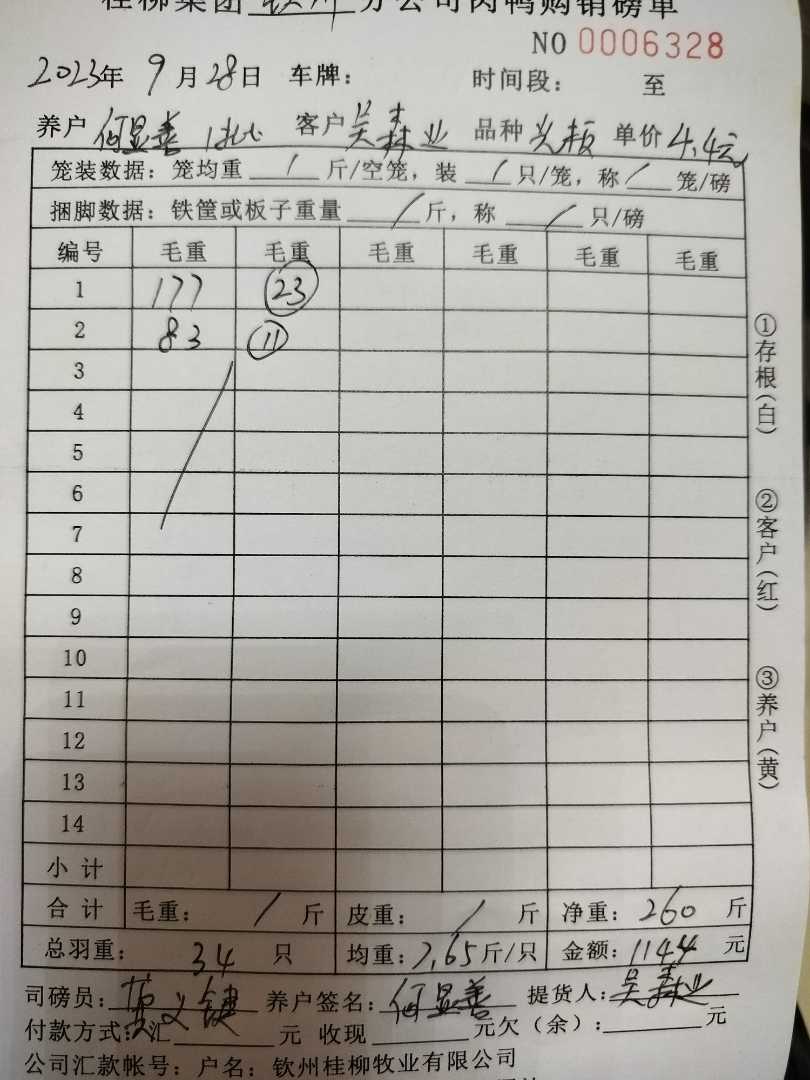 桂柳集团 钦州 分公司肉鸭购销磅单
NO 0006328
2023年 9月28日 车牌: 时间段: 至
养户 何显善 1批 客户 吴森业 品种 头板 单价 4.4元
笼装数据: 笼均重 / 斤/空笼, 装 / 只/笼, 称 / 笼/磅
捆脚数据: 铁筐或板子重量 / 斤, 称 / 只/磅
编号 毛重 毛重 毛重 毛重 毛重 毛重
1 177 23
2 83 11
3
4
5
6
7
8
9
10
11
12
13
14
小计
合计 毛重: / 斤 皮重: / 斤 净重: 260 斤
总羽重: 34 只 均重: 7.65 斤/只 金额: 1144 元
司磅员: 养户签名: 何显善 提货人: 吴森业
付款方式: 汇 元 收现 元欠(余): 元
公司汇款帐号: 户名: 钦州桂柳牧业有限公司
①存根(白)
②客户(红)
③养户(黄)